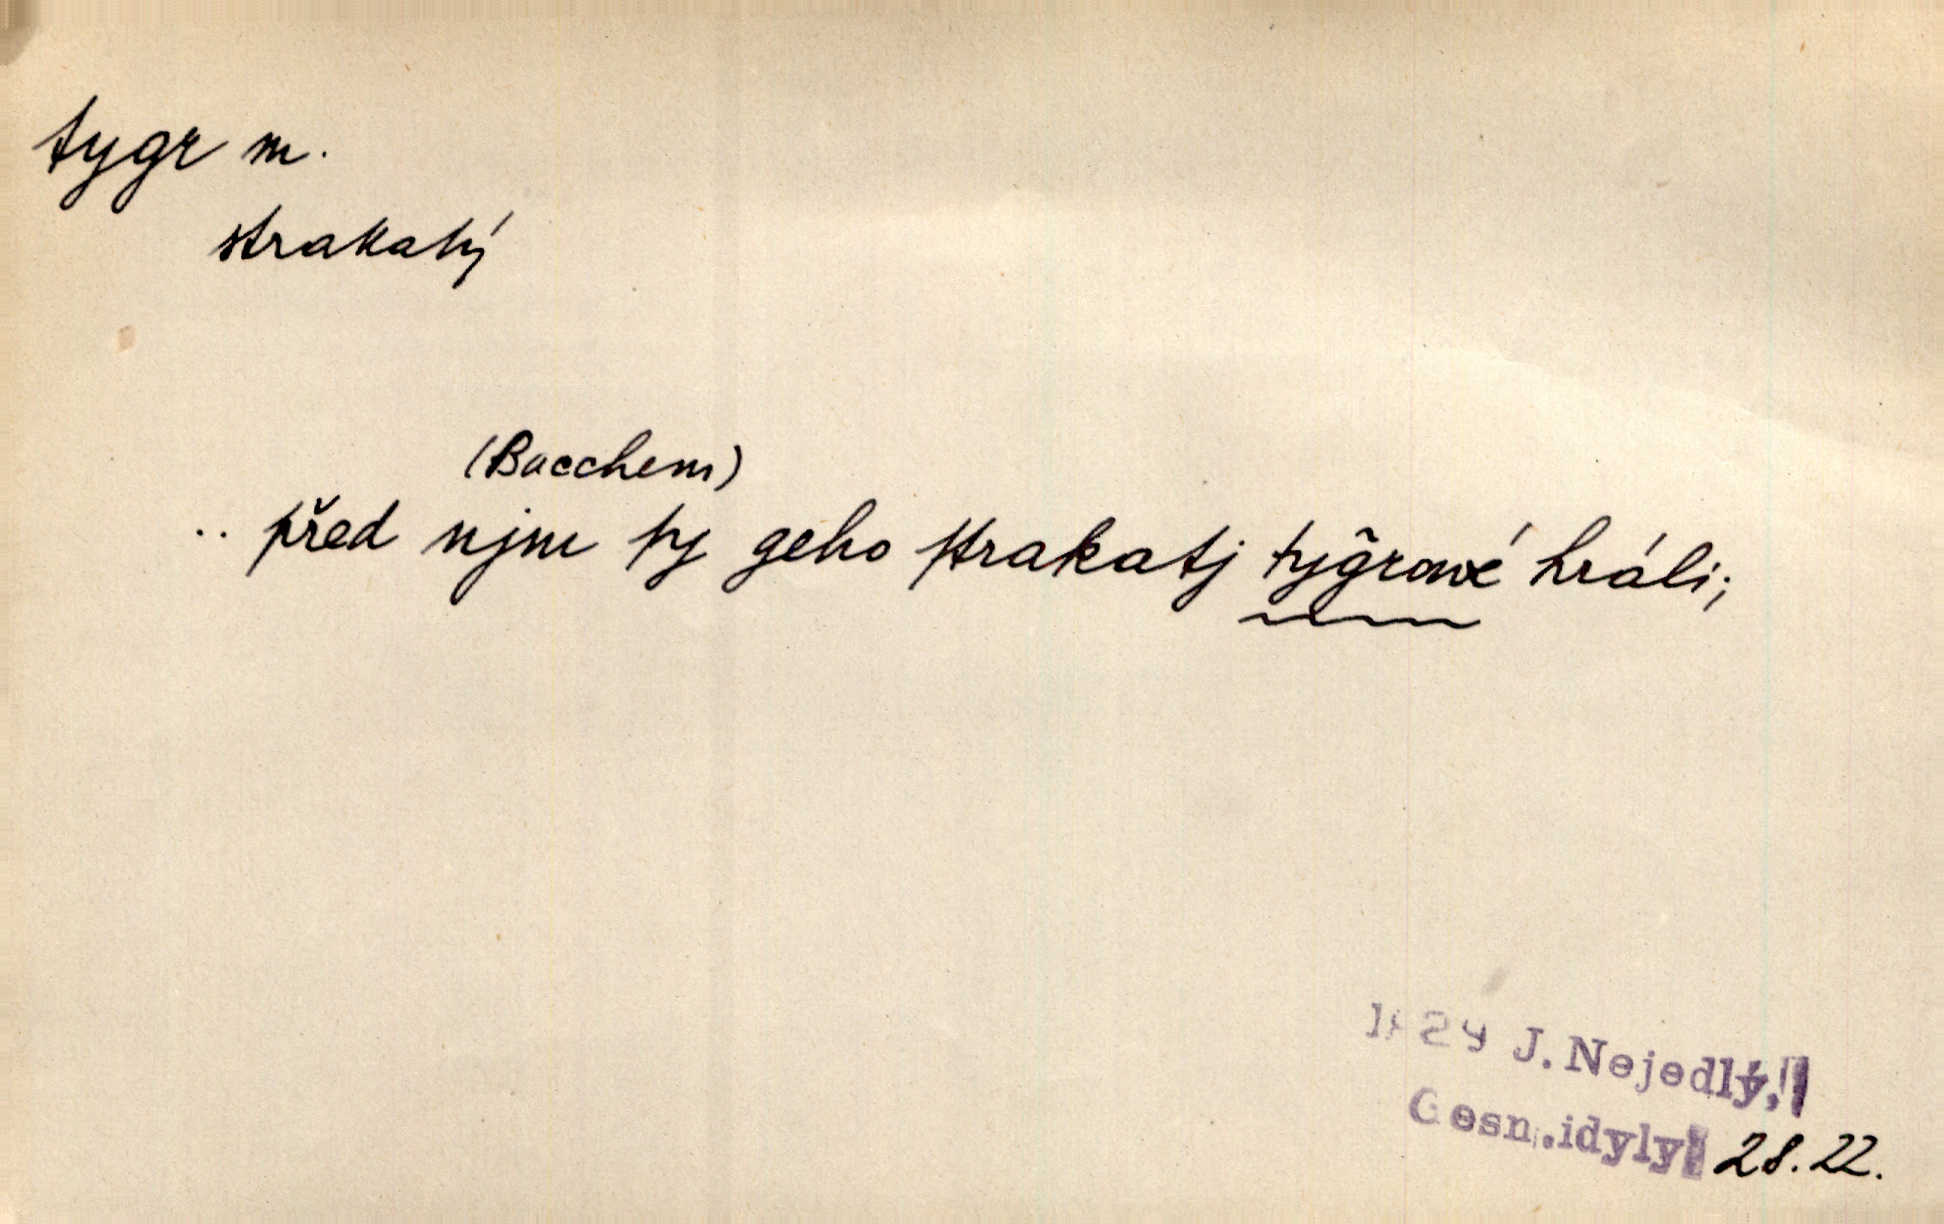 tygr m.
strakatý
(Bacchem)
.. před njm ty geho strakatj tyĝrowé hráli;
1829 J. Nejedlý,
Gesn. idyly 28. 22.